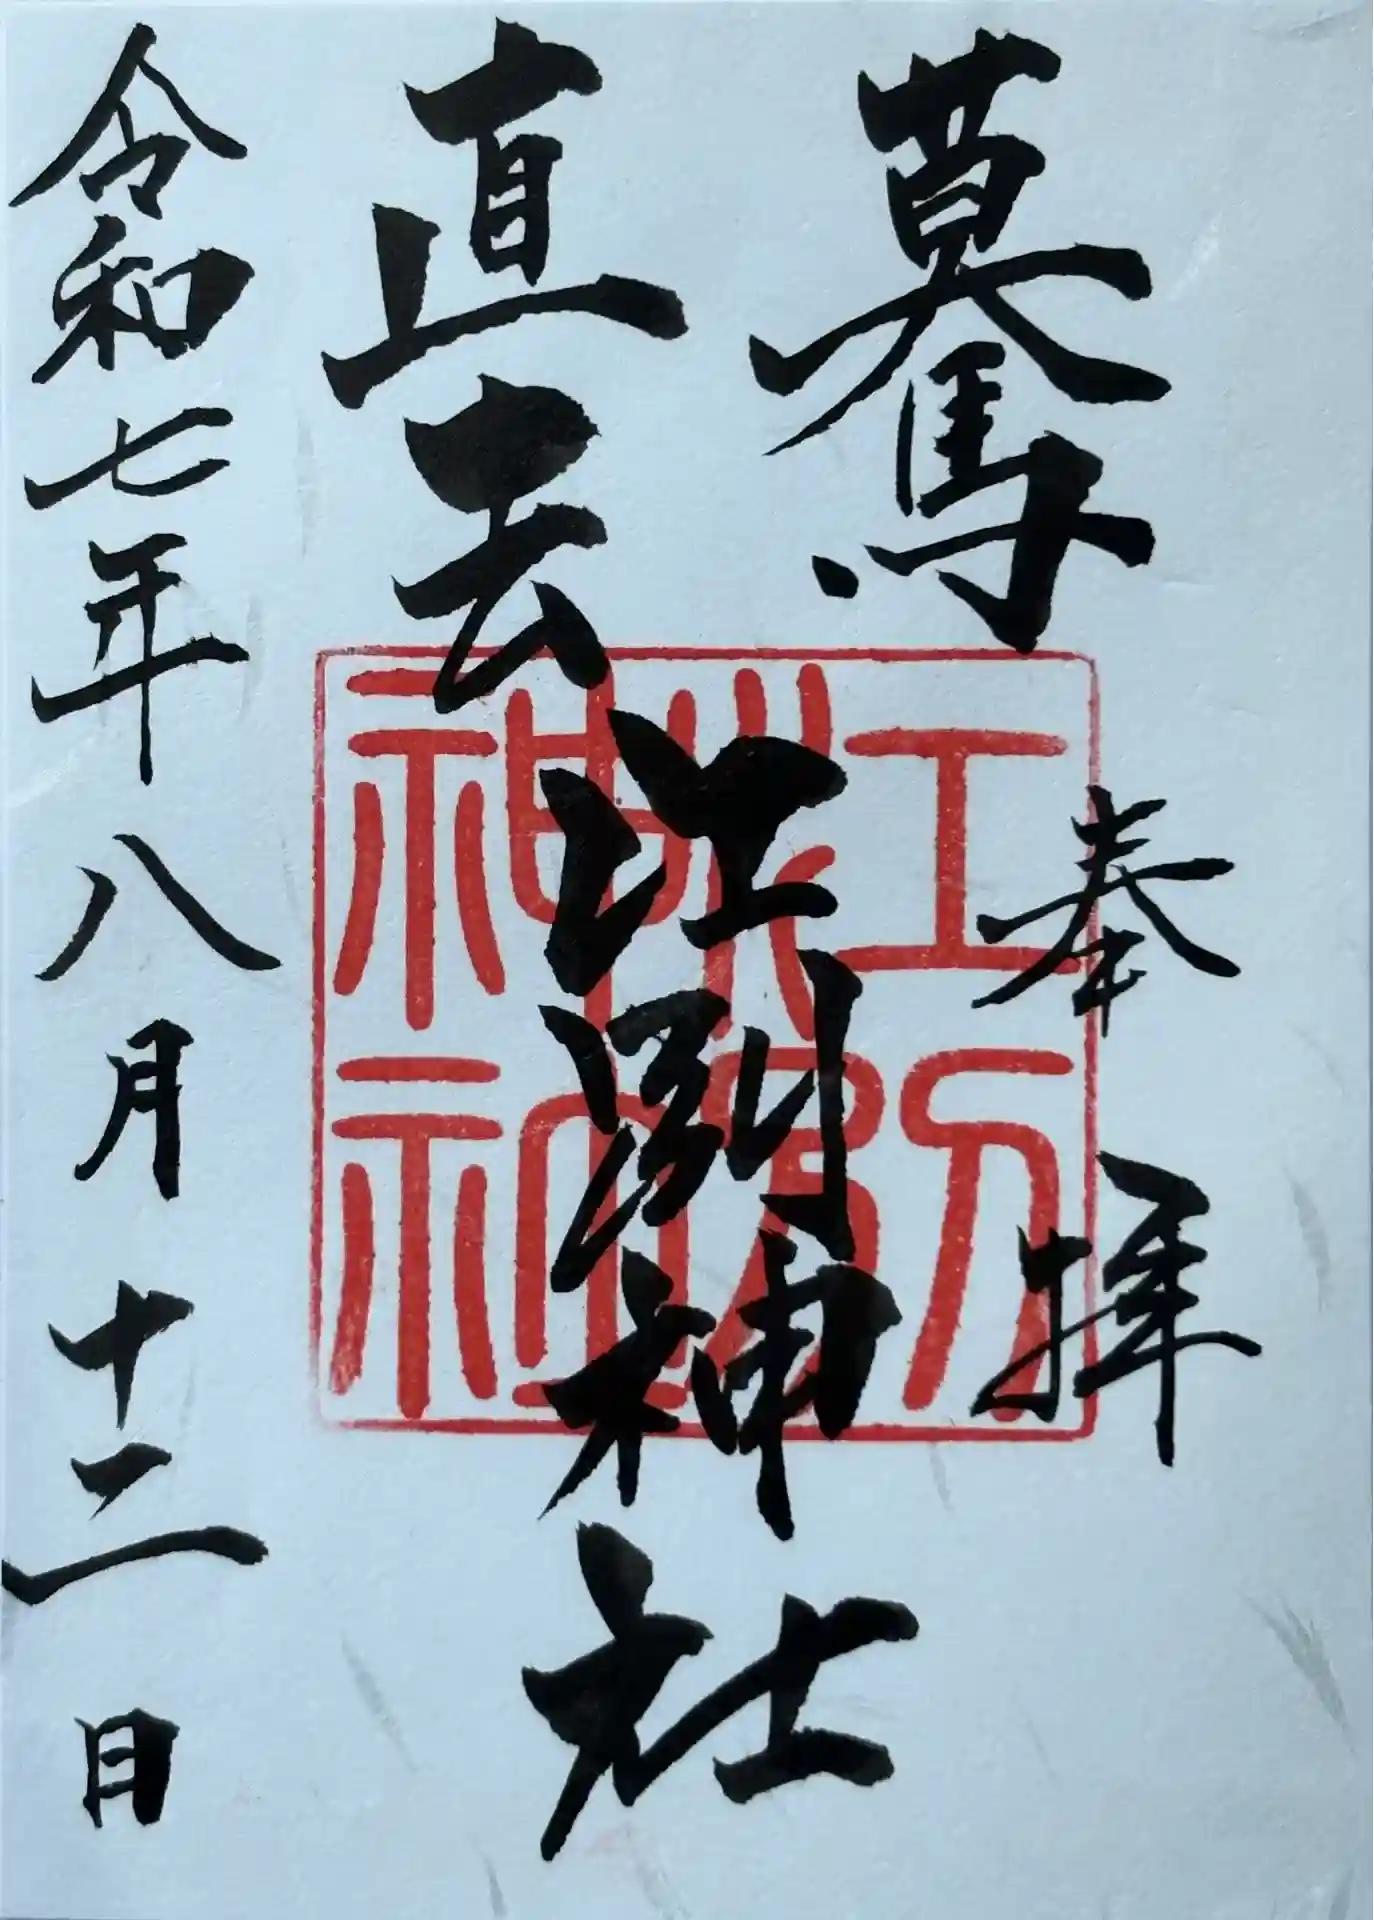 奉拝
驀
直去
江別神社
令和七年八月十二日
江別
神社